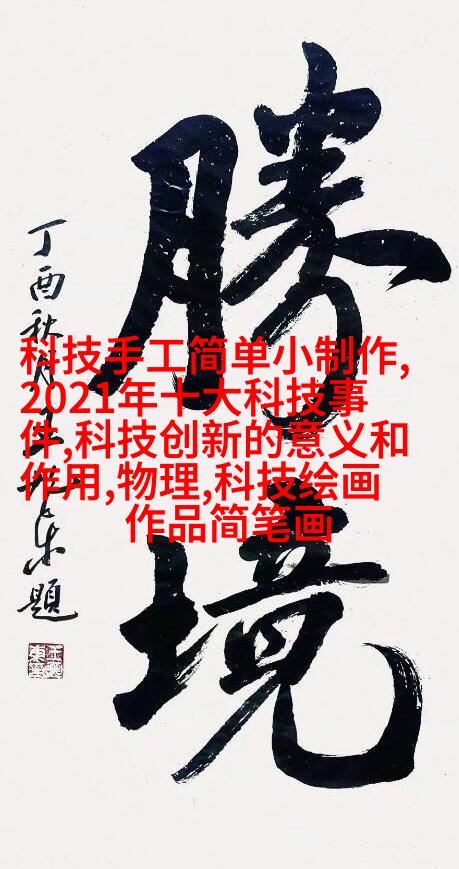 勝境
丁酉秋月
題
科技手工简单小制作,
2021年十大科技事
件,科技创新的意义和
作用,物理,科技绘画
作品简笔画